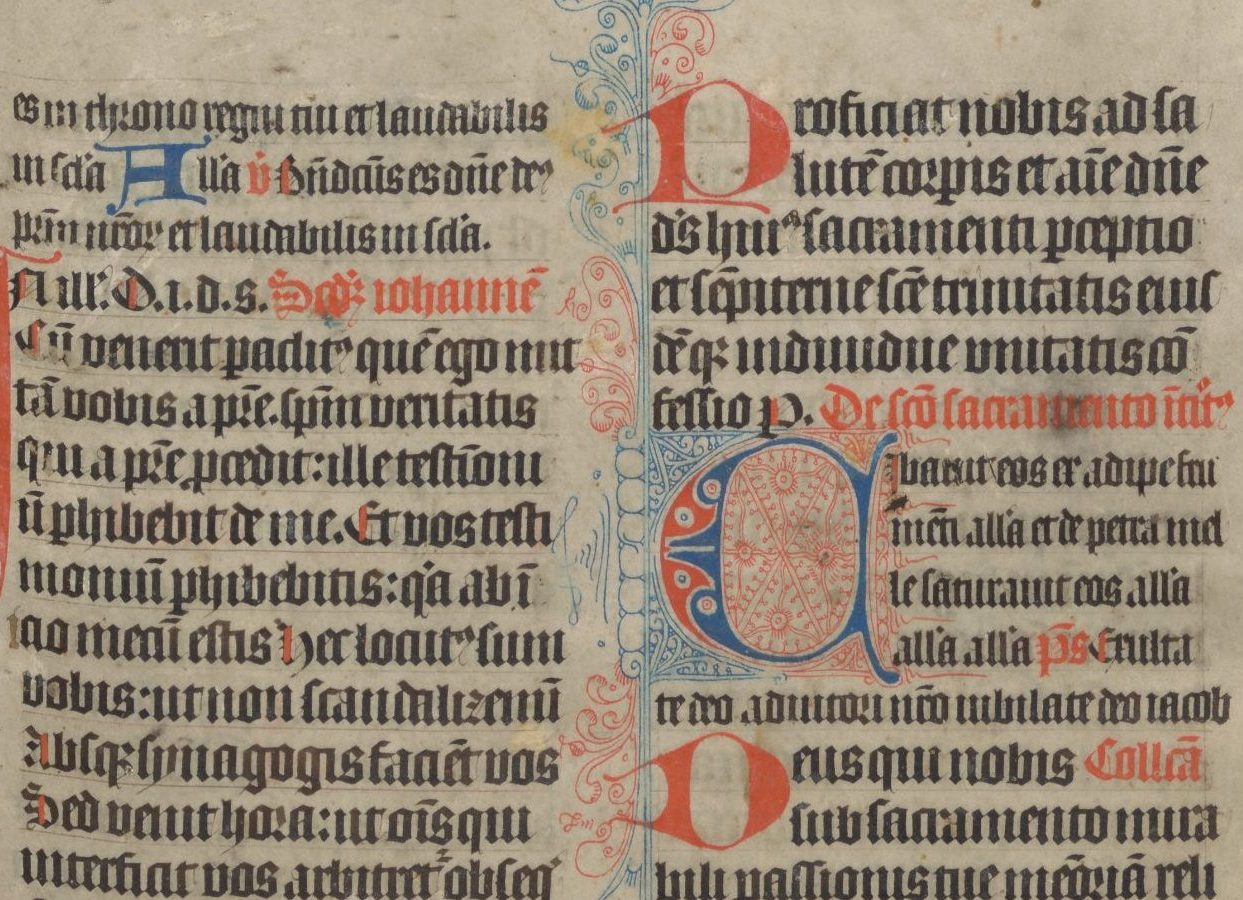 es in throno regni tui et laudabilis
in sc̄la Allīa v̄ Bn̄dcūs es dn̄e deꝰ
prm̄ nr̄oꝝ et laudabilis in sc̄la.
Alll'. D. i. d. s. Scd̄ꝫ iohannē
Cū venerit paclitꝰ quē ego mit
tā vobis a pr̄e. spm̄ veritatis
qui a pr̄e ꝓcedit: ille testīoni
ū phibebit de me. Et vos testi
moniū phibebitis: qīa ab ī
icio mecū estis Hec locutꝰ sum
vobis: ut non scandalizemī
Absqꝫ synagogis faciēt vos
Sed venit hora: ut oīs qui
interficit vos arbitretᷣ obseq
Proficiat nobis ad sa
lutē corpis et aīe dn̄e
ds̄ huiꝰ sacramenti ꝑceptio
et sēpiterne scē trinitatis eius
dēqꝫ indiuidue vnitatis cō
fessio p. De sc̄o sacramento ītitꝰ
Cibauit eos ex adipe fru
mēti all'a et de petra mel
le saturauit eos all'a
all'a all'a p̄s Exulta
te deo adiutori nr̄o iubilate deo iacob
Deus qui nobis Collcā
sub sacramento mira
bili passionis tue memoriā reli